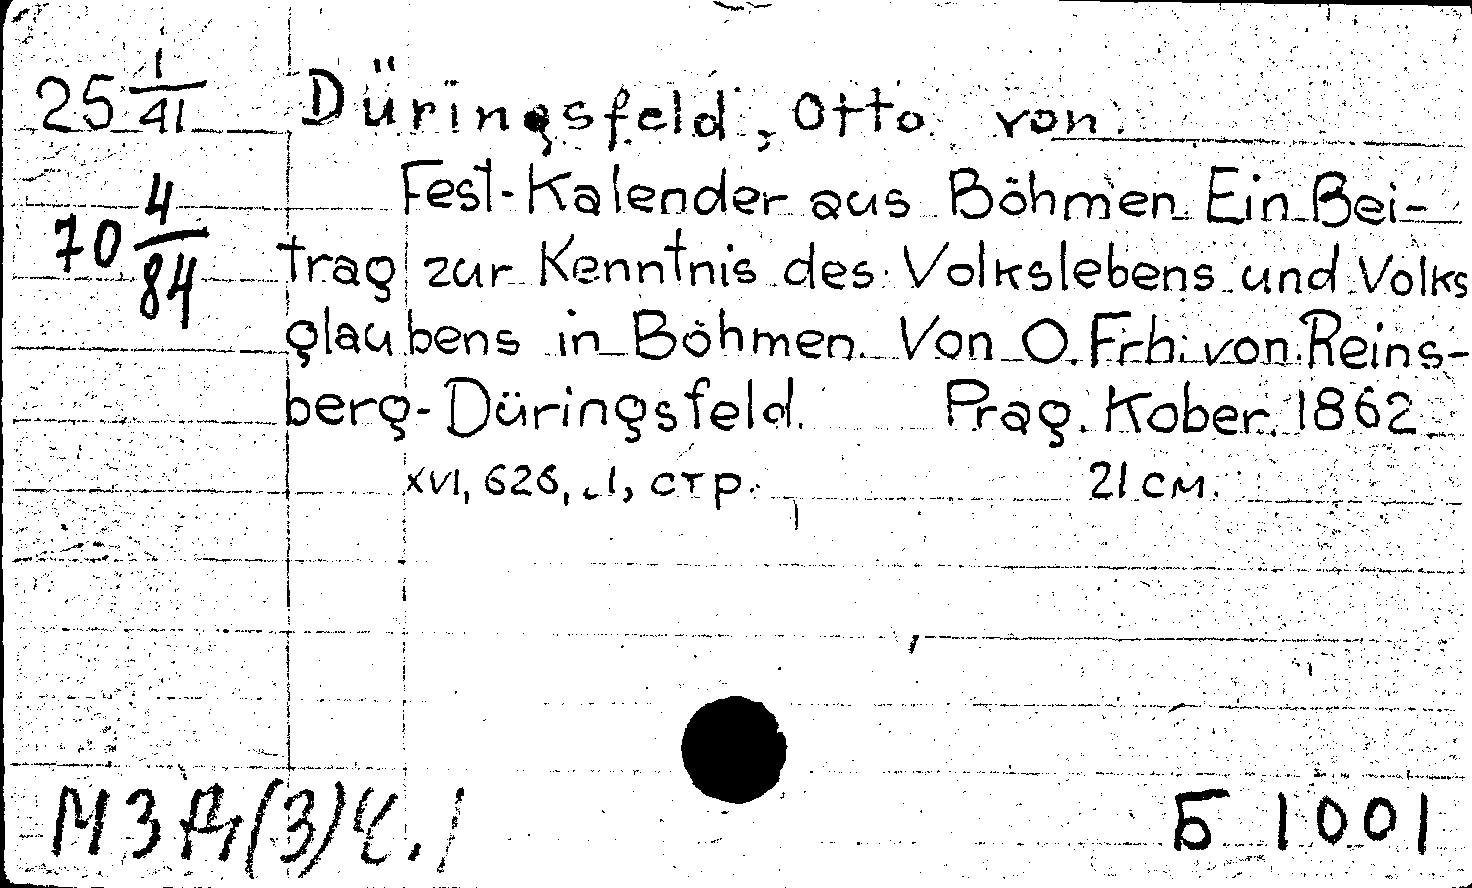 25 1/41 Düringsfeld, Otto von.
Fest-Kalender aus Böhmen Ein Bei-
70 4/84 trag zur Kenntnis des Volkslebens und Volks
glaubens in Böhmen. Von O. Frh. von Reins-
berg-Düringsfeld. Prag. Kober. 1862
XVI, 626, 1, стр. 21 см.
Б 1001